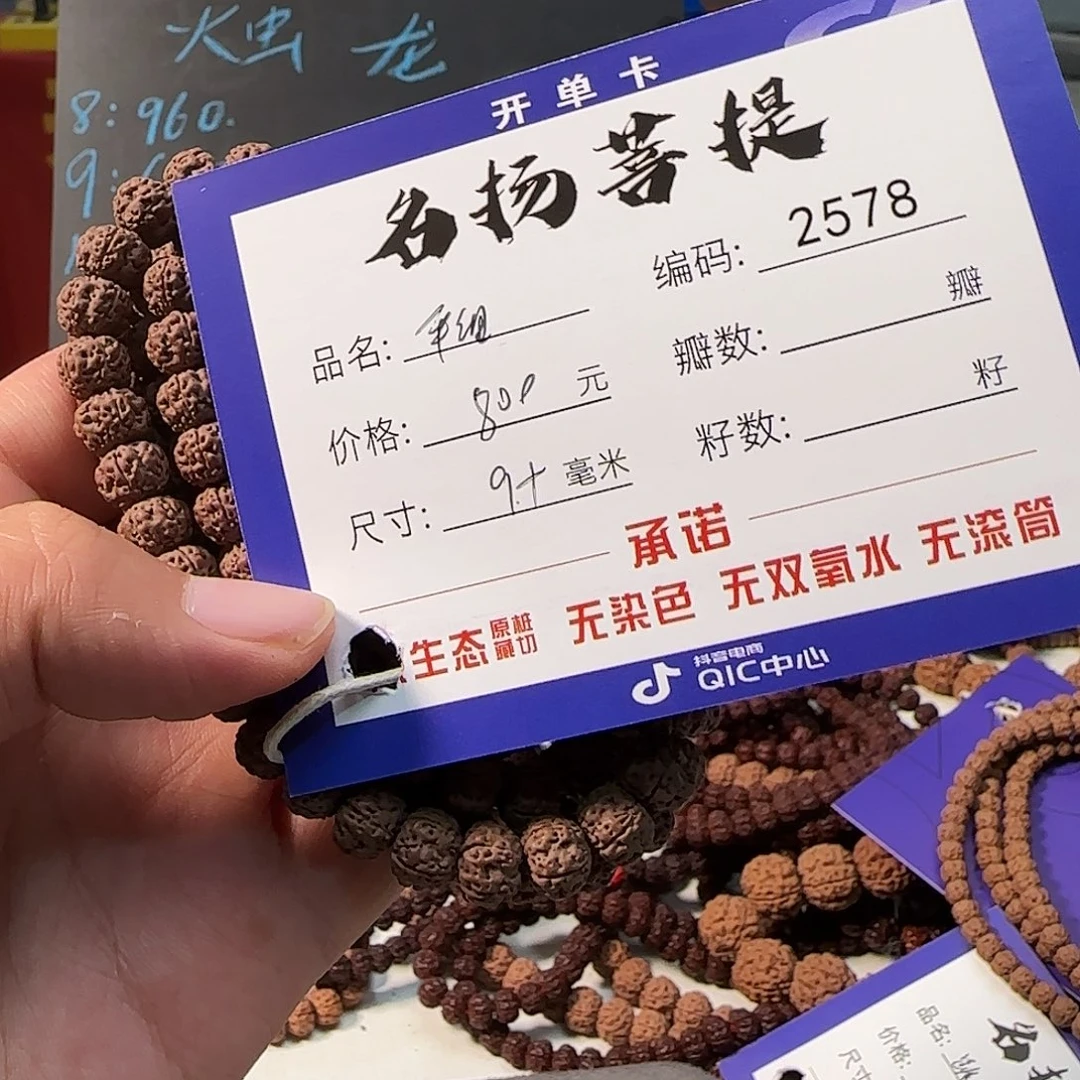 火虫 龙
8: 960.
9:
开单卡
名扬菩提
编码: 2578
品名: 单组
瓣数: 瓣
价格: 800 元
籽数: 籽
尺寸: 9.+ 毫米
承诺
生态 原桩藏切 无染色 无双氧水 无滚筒
抖音电商
QIC中心
名扬
品名:
价格:
尺寸: